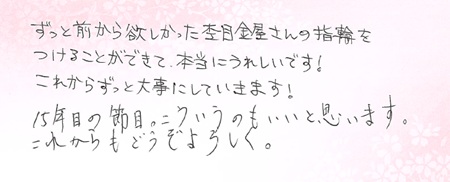 ずっと前から欲しかった杢目金屋さんの指輪を
つけることができて、本当にうれしいです!
これからずっと大事にしていきます!
15年目の節目。こういうのもいいと思います。
これからもどうぞよろしく。